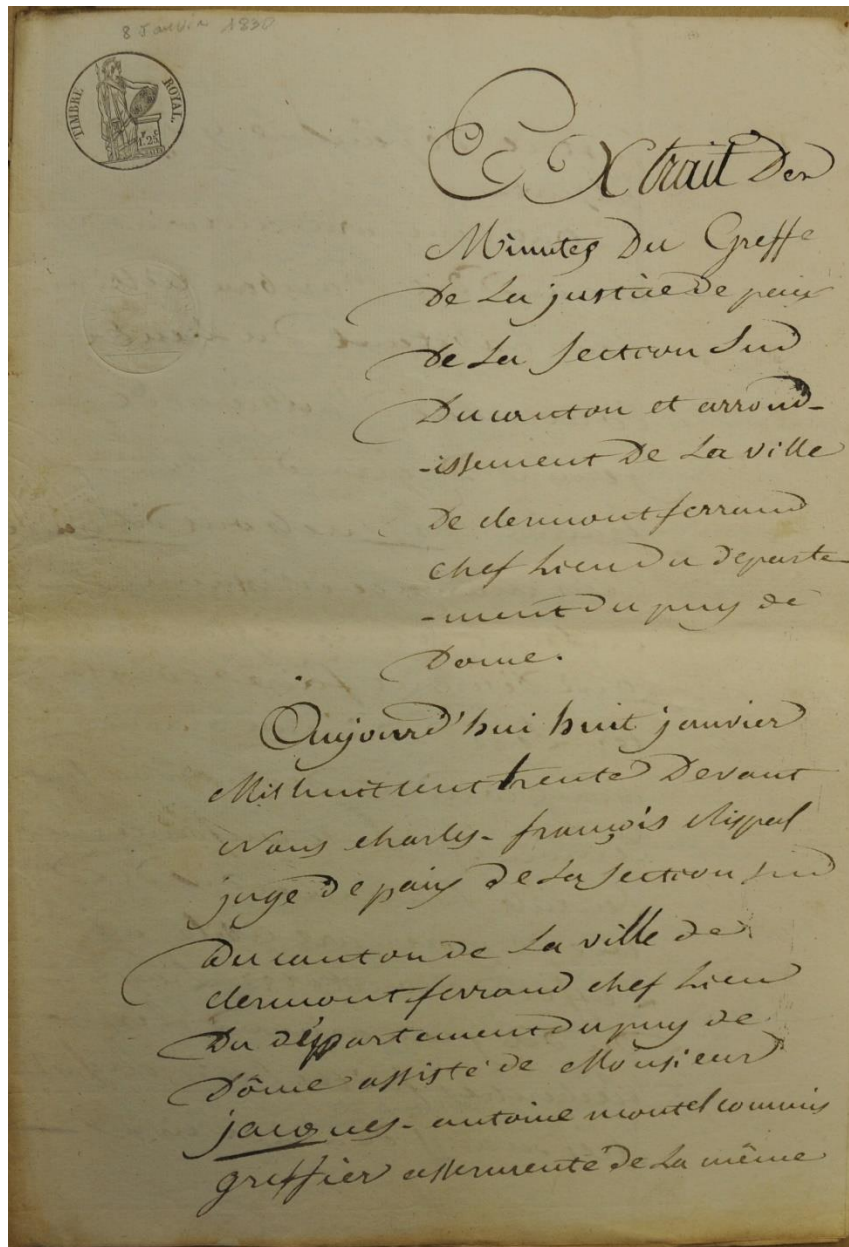 8 Janvier 1830
TIMBRE ROYAL.
1f. 25
Extrait Des
Minutes Du Greffe
De La justice De paix
De La Section Sud
Du canton et arrond-
-issement De La ville
De clermont ferrand
chef Lieu Du Departe
-ment Du puy de
Dome.
Aujourd'hui huit janvier
Mil huit cent trente Devant
Nous charles-françois
juge De paix De La Section Sud
Du canton de La ville de
clermont ferrand chef Lieu
Du département Du puy de
Dôme assisté de Monsieur
jacques-antoine montel commis
greffier assermenté de La même